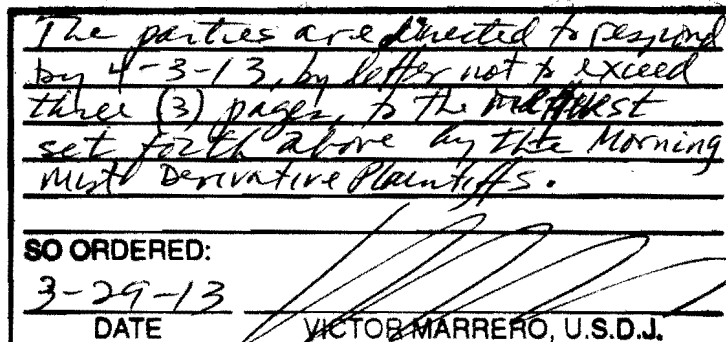 The parties are directed to respond
by 4-3-13, by letter not to exceed
three (3) pages, to the request
set forth above by the Morning
Mist Derivative Plaintiffs.
SO ORDERED:
3-29-13
DATE VICTOR MARRERO, U.S.D.J.